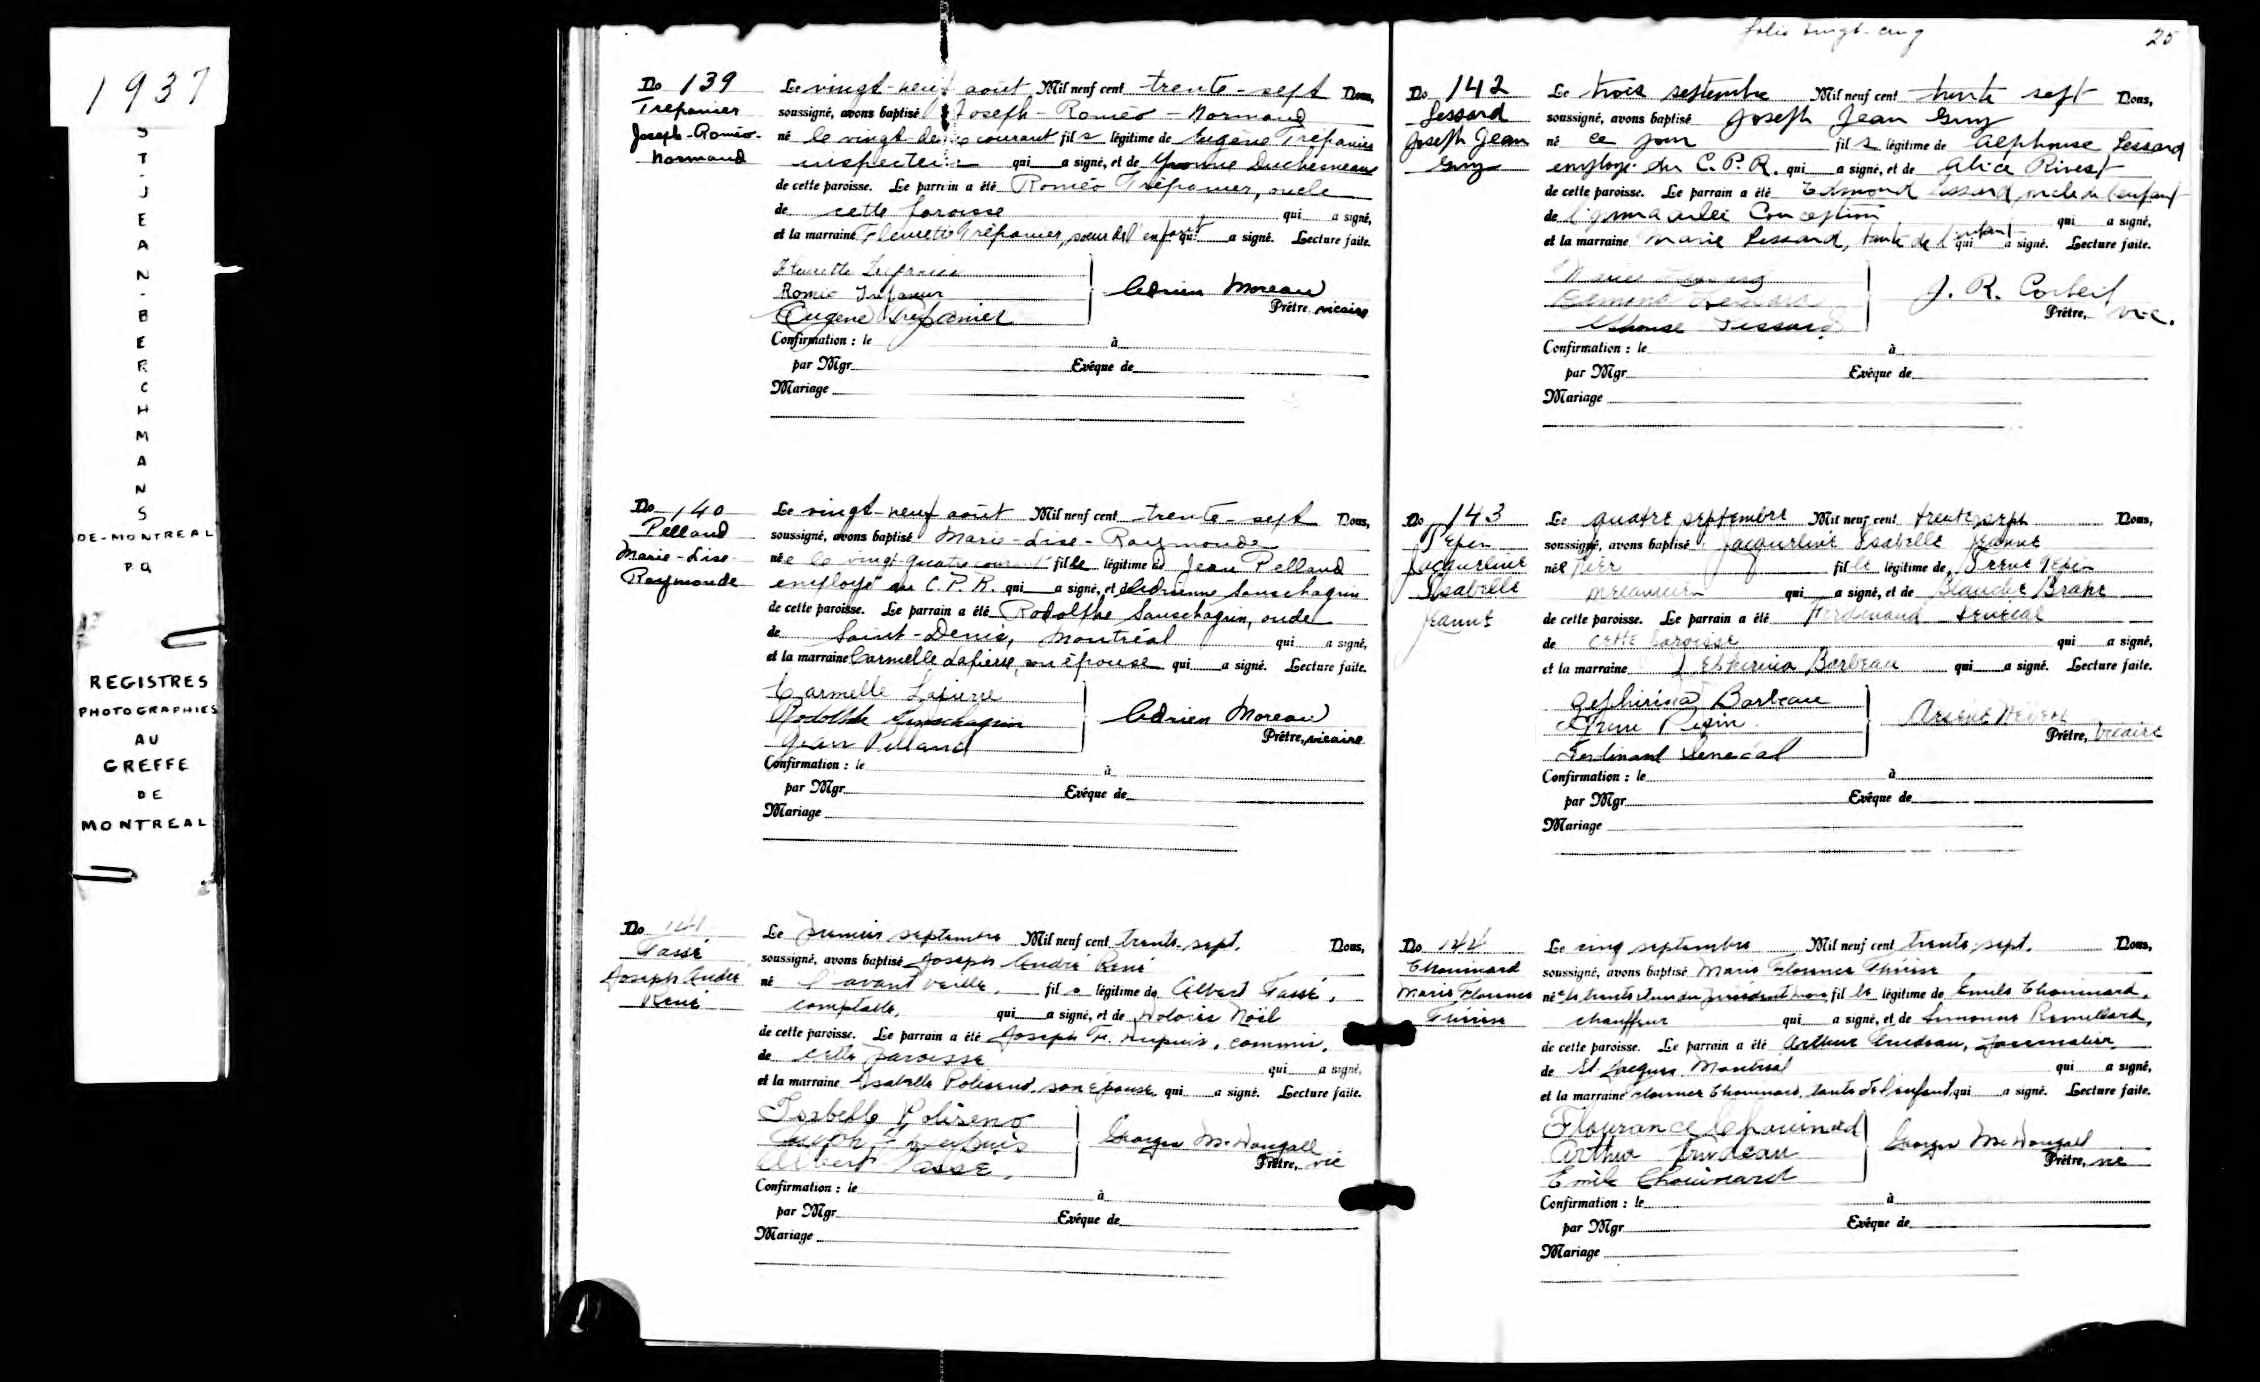 1937
ST-JEAN-BERCHMANS
DE-MONTREAL
P Q
REGISTRES
PHOTOGRAPHIES
AU
GREFFE
DE
MONTREAL
No 139
Trepanier
Joseph-Roméo-
Normand
Le vingt-neuf août Mil neuf cent trente-sept Nous,
soussigné, avons baptisé Joseph-Roméo-Normand
né le vingt courant fils légitime de Eugène Trépanier
inspecteur qui a signé, et de Yvonne Duchesneau
de cette paroisse. Le parrain a été Roméo Trépanier, oncle
de cette paroisse qui a signé,
et la marraine Fleurette Trépanier, soeur de l'enfant qui a signé. Lecture faite.
Fleurette
Roméo Trépanier
Eugène Trépanier
Adrien Moreau
Prêtre, vicaire
Confirmation : le à
par Mgr Evêque de
Mariage
No 140
Pelland
Marie-Lise-
Raymonde
Le vingt-neuf août Mil neuf cent trente-sept Nous,
soussigné, avons baptisé Marie-Lise-Raymonde
née le vingt-quatre courant fille légitime de Jean Pelland
employé au C. P. R. qui a signé, et de Adrienne Sanschagrin
de cette paroisse. Le parrain a été Rodolphe Sanschagrin, oncle
de Saint-Denis, Montréal qui a signé,
et la marraine Carmelle Lapierre, son épouse qui a signé. Lecture faite.
Carmelle Lapierre
Rodolphe Sanschagrin
Jean Pelland
Adrien Moreau
Prêtre, vicaire
Confirmation : le à
par Mgr Evêque de
Mariage
No 141
Tassé
Joseph André
René
Le premier septembre Mil neuf cent trente-sept. Nous,
soussigné, avons baptisé Joseph André René
né l'avant veille, fils légitime de Albert Tassé,
comptable, qui a signé, et de Dolorès Noël
de cette paroisse. Le parrain a été Joseph Dupuis, commis,
de cette paroisse qui a signé,
et la marraine Isabelle Poliseno, son épouse, qui a signé. Lecture faite.
Isabelle Poliseno
Joseph Dupuis
Albert Tassé,
Georges McDougall
Prêtre, vic
Confirmation : le à
par Mgr Evêque de
Mariage
folio vingt-cinq
25
No 142
Lessard
Joseph Jean
Guy
Le trois septembre Mil neuf cent trente sept Nous,
soussigné, avons baptisé Joseph Jean Guy
né ce jour fils légitime de Alphonse Lessard
employé du C. P. R. qui a signé, et de Alice Rivest
de cette paroisse. Le parrain a été Edmond Lessard, oncle de l'enfant
de l'Immaculée Conception qui a signé,
et la marraine Marie Lessard, tante de l'enfant qui a signé. Lecture faite.
Marie Lessard
Edmond Lessard
Alphonse Lessard
J. R. Corbeil
Prêtre, vic.
Confirmation : le à
par Mgr Evêque de
Mariage
No 143
Pépin
Jacqueline
Isabelle
Jeanne
Le quatre septembre Mil neuf cent trente sept Nous,
soussigné, avons baptisé Jacqueline Isabelle Jeanne
née hier fille légitime de Irené Pépin
mécanicien qui a signé, et de
de cette paroisse. Le parrain a été Ferdinand Sénécal
de cette paroisse qui a signé,
et la marraine Zéphirina Barbeau qui a signé. Lecture faite.
Zéphirina Barbeau
Irené Pépin
Ferdinand Senécal
Prêtre, vicaire
Confirmation : le à
par Mgr Evêque de
Mariage
No 144
Chouinard
Marie Florence
Thérèse
Le cinq septembre Mil neuf cent trente-sept. Nous,
soussigné, avons baptisé Marie Florence Thérèse
née le trente et un du précédent mois fille légitime de Emile Chouinard,
chauffeur qui a signé, et de Simonne Remillard,
de cette paroisse. Le parrain a été Arthur Trudeau, journalier,
de St Jacques Montréal qui a signé,
et la marraine Florence Chouinard, tante de l'enfant, qui a signé. Lecture faite.
Flourance Chouinard
Arthur Trudeau
Emile Chouinard
Georges McDougall
Prêtre, vic
Confirmation : le à
par Mgr Evêque de
Mariage